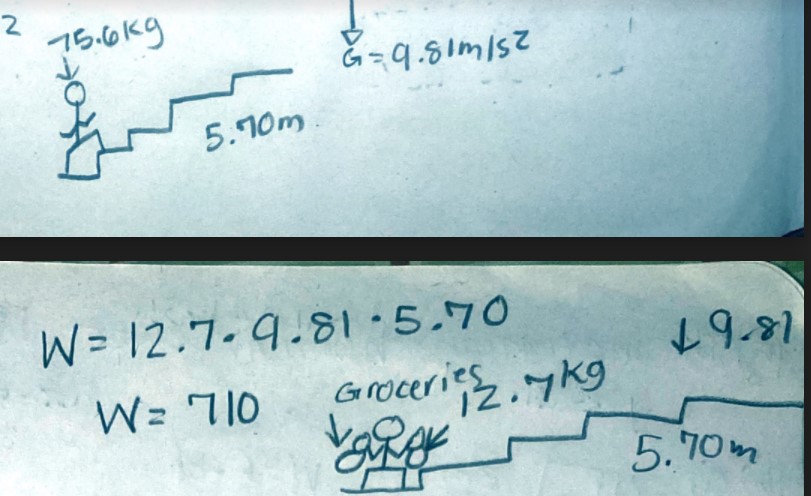 2
75.6kg
G=9.81m/s2
5.70m
W=12.7.9.81.5.70
↓9.81
W=710
Groceries
12.7kg
5.70m